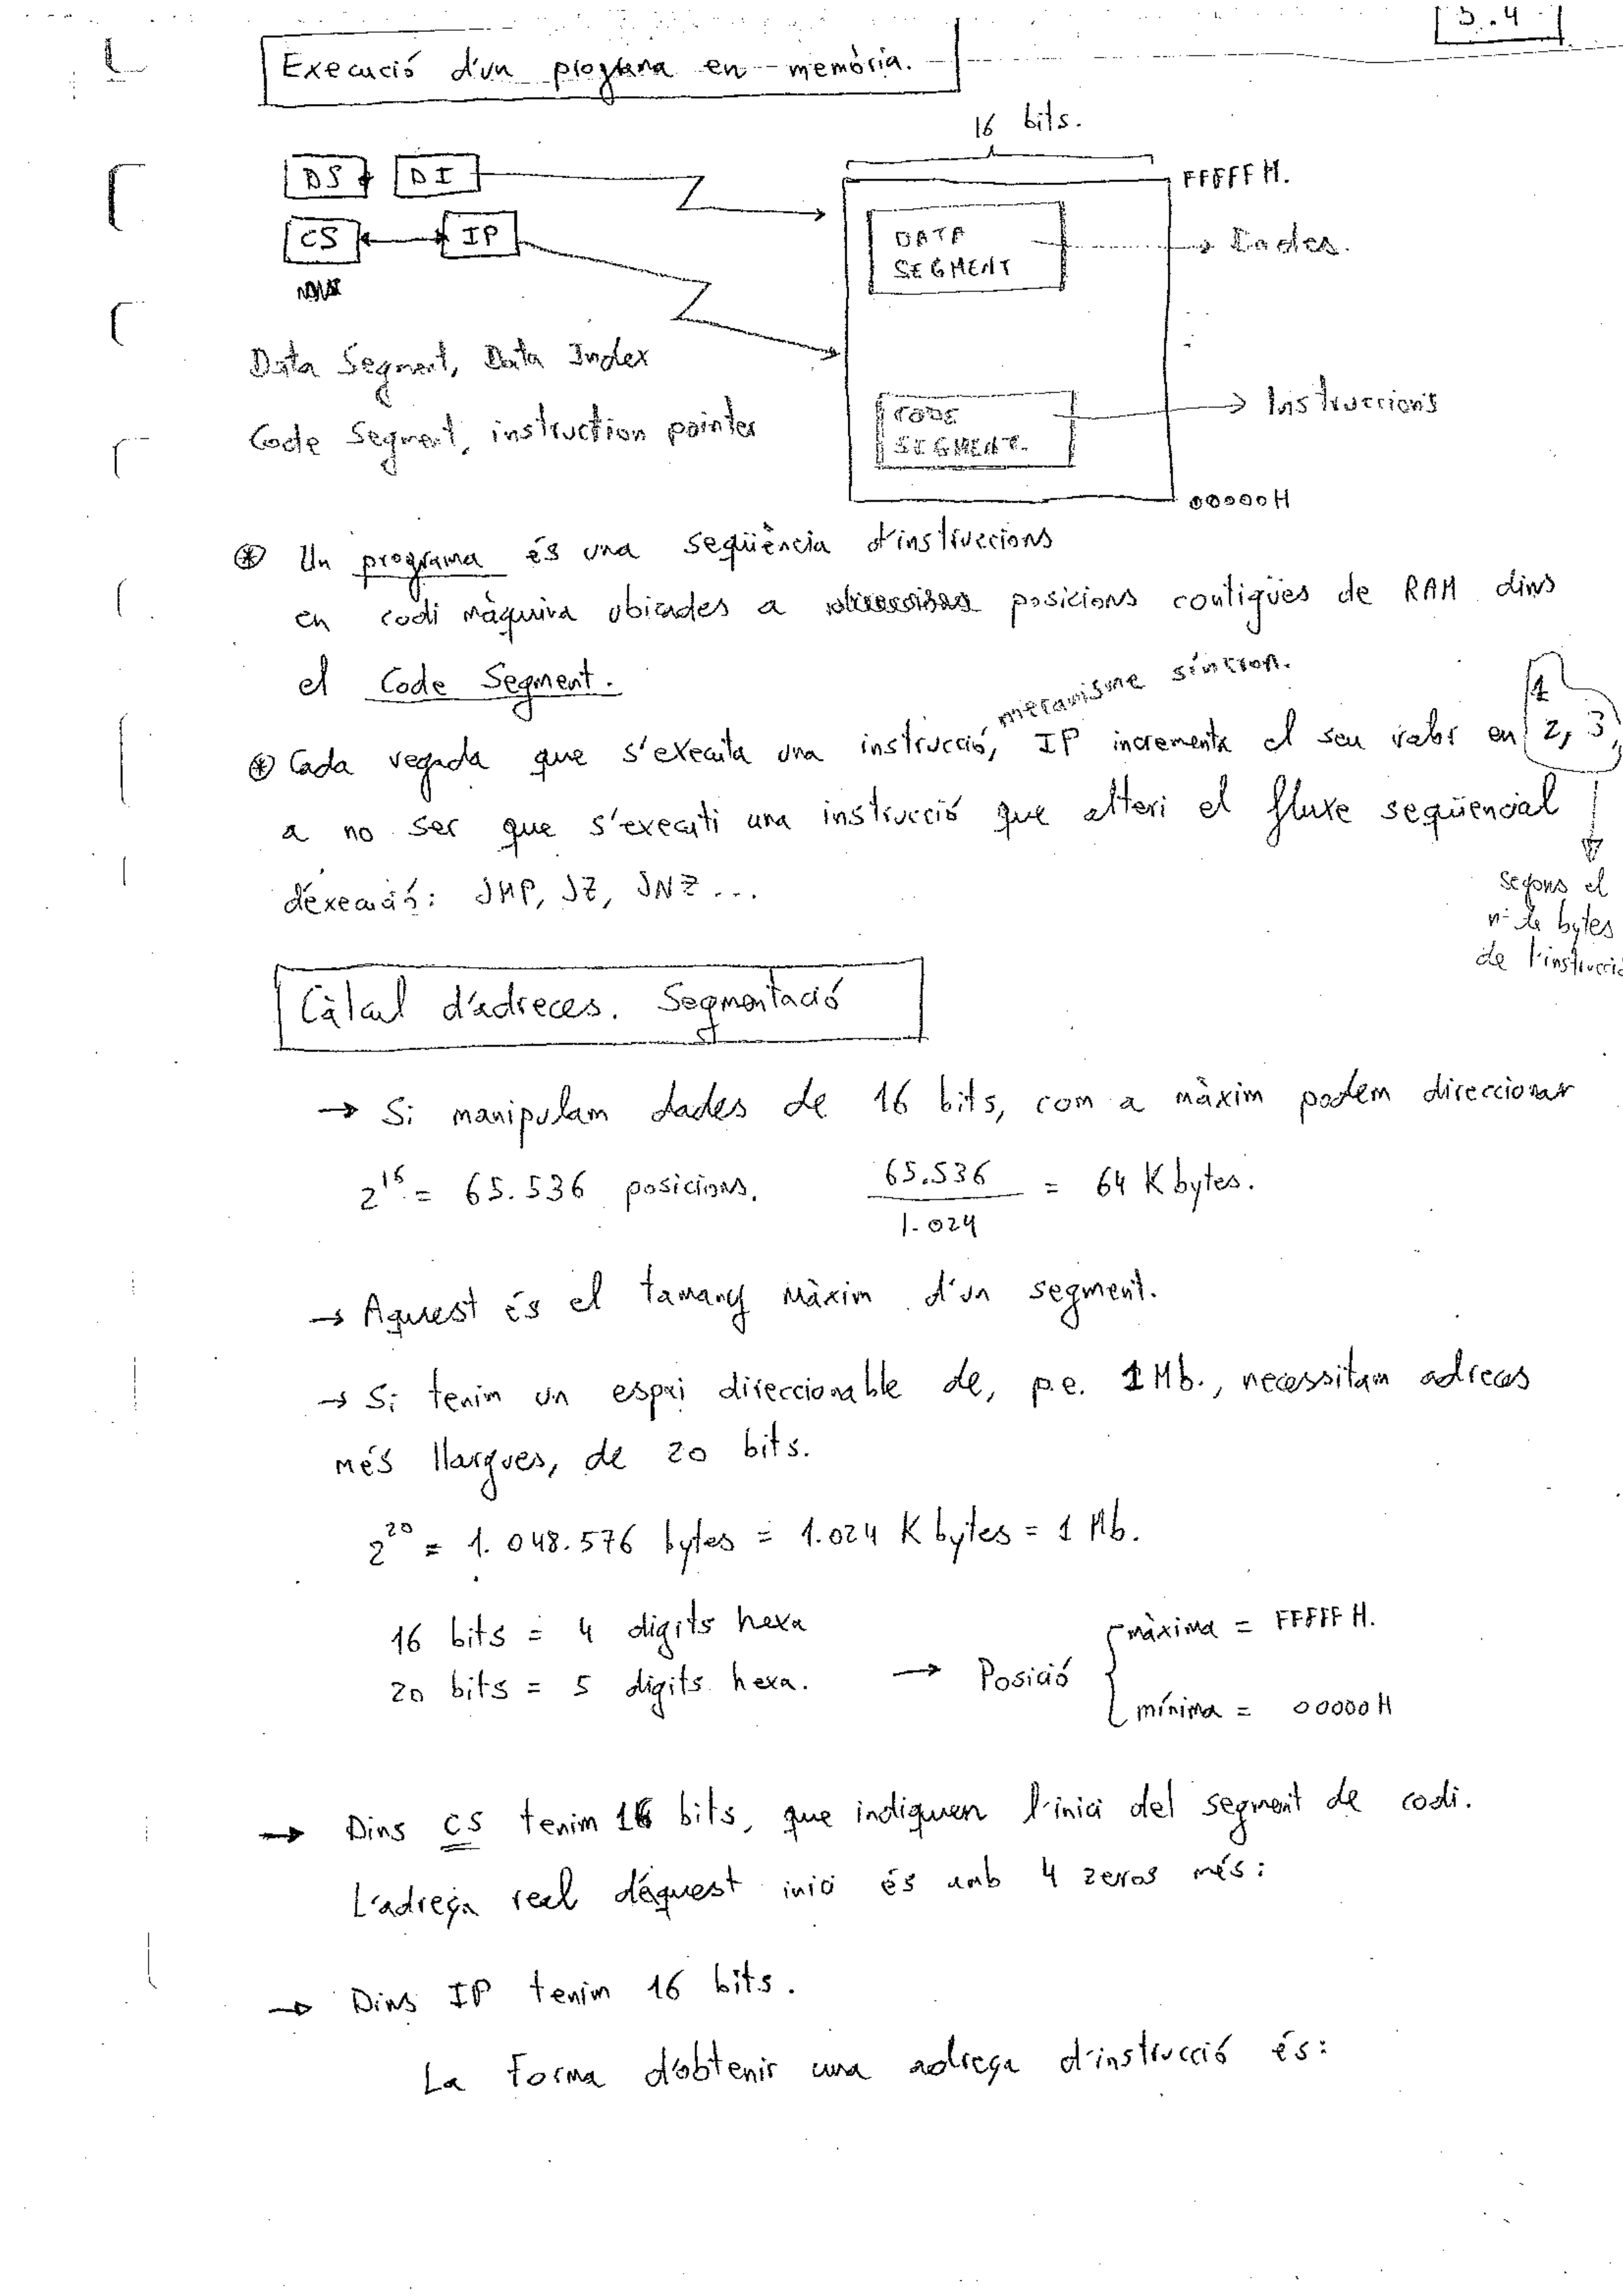 3.4
Execució d'un programa en memòria.
16 bits.
DS DI
FFFFF H.
CS IP
DATA
SEGMENT
Dades.
Data Segment, Data Index
Code Segment, instruction pointer
CODE
SEGMENT.
Instruccions
00000H
Un programa és una seqüència d'instruccions
en codi màquina ubicades a posicions contigües de RAM dins
el Code Segment.
mecanisme síncron.
Cada vegada que s'executa una instrucció, IP incrementa el seu valor en 1 2, 3,
a no ser que s'executi una instrucció que alteri el fluxe seqüencial
d'execució: JMP, JZ, JNZ ...
segons el
nº de bytes
de l'instrucció
Càlcul d'adreces. Segmentació
→ Si manipulam dades de 16 bits, com a màxim podem direccionar
2^16 = 65.536 posicions. 65.536 / 1.024 = 64 K bytes.
→ Aquest és el tamany màxim d'un segment.
→ Si tenim un espai direccionable de, p.e. 1 Mb., necessitam adreces
més llargues, de 20 bits.
2^20 = 1.048.576 bytes = 1.024 K bytes = 1 Mb.
16 bits = 4 digits hexa
20 bits = 5 digits hexa. → Posició { màxima = FFFFF H.
mínima = 00000 H
→ Dins CS tenim 16 bits, que indiquen l'inici del segment de codi.
L'adreça real d'aquest inici és amb 4 zeros més:
→ Dins IP tenim 16 bits.
La forma d'obtenir una adreça d'instrucció és: